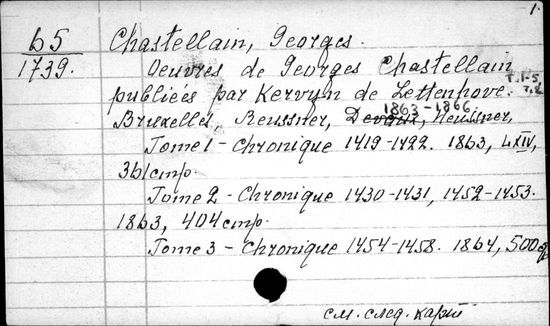 1.
65
1739.
Chastellain, Georges.
Oeuvres de Georges Chastellain
т. 1-5
т. 8
publiées par Kervyn de Lettenhove.
1863-1866.
Bruxelles, Heussner, Devaux, Heussner,
Tome 1 - Chronique 1419-1422. 1863, LXIV,
361 стр.
Tome 2 - Chronique 1430-1431, 1452-1453.
1863, 404 стр.
Tome 3 - Chronique 1454-1458. 1864, 500
см. след. карт